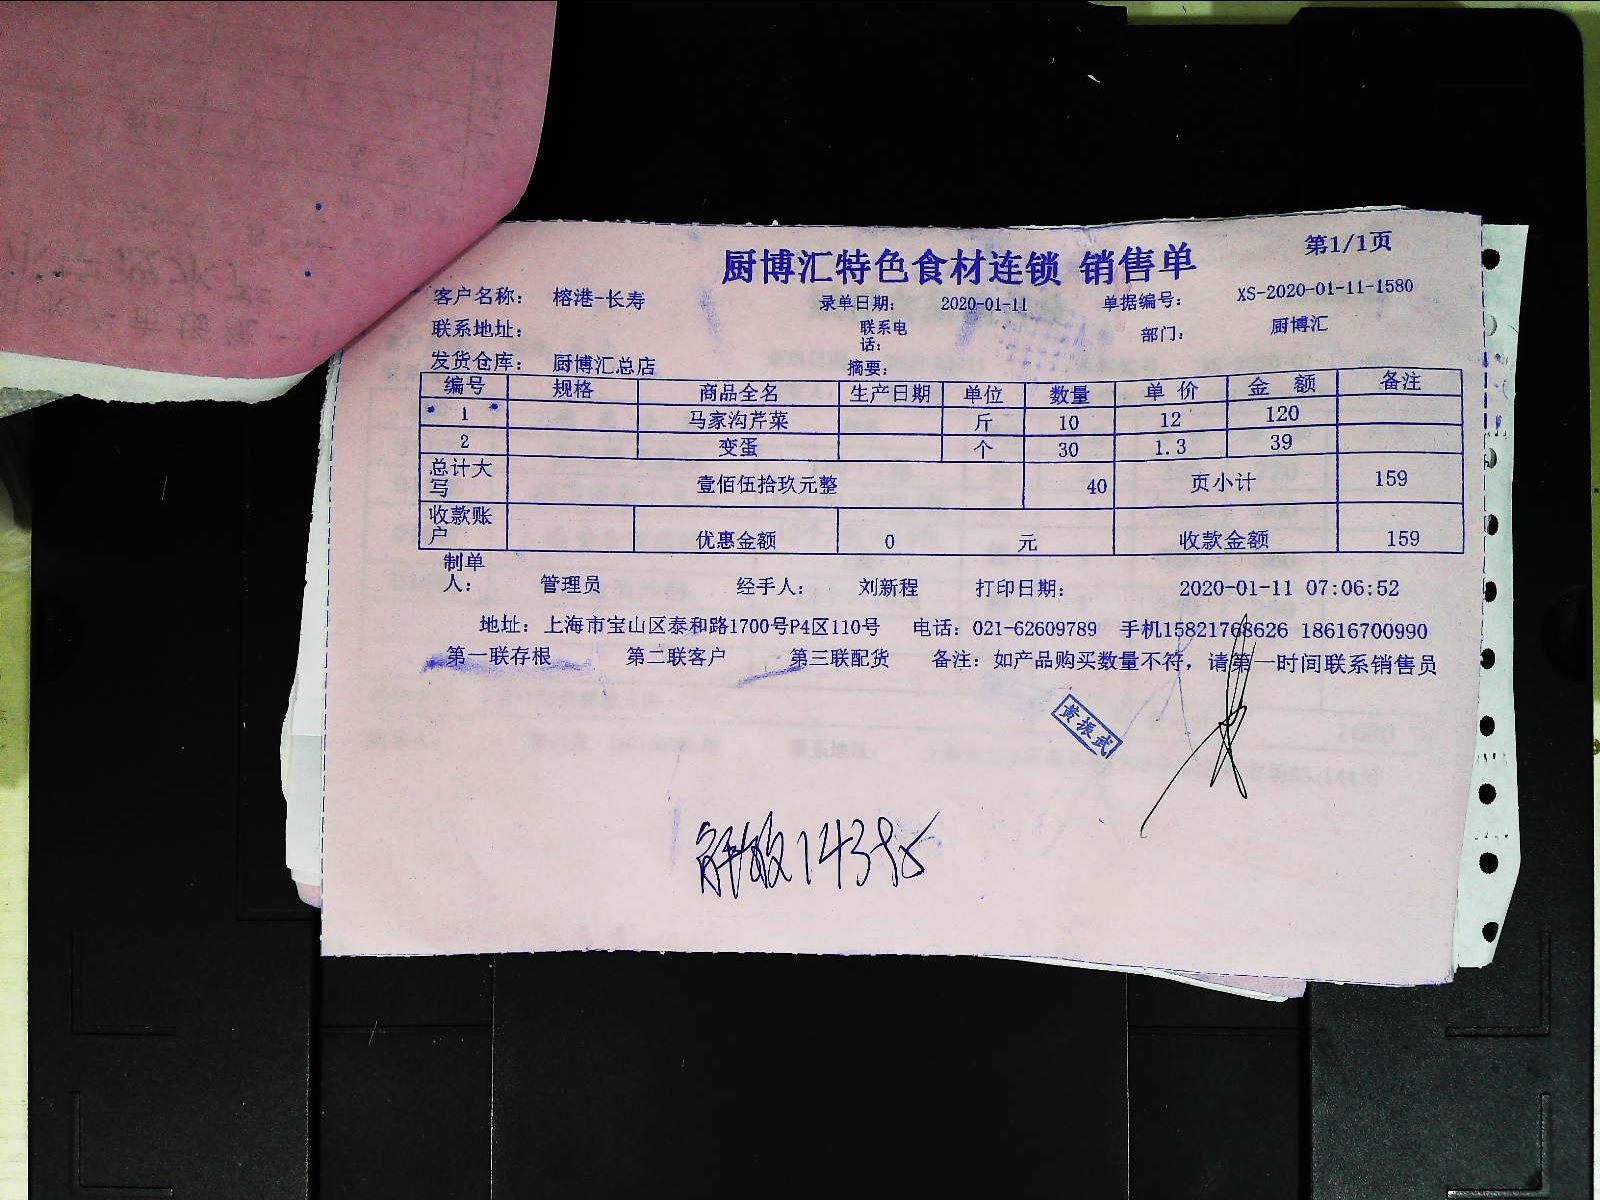 厨博汇特色食材连锁 销售单 第1/1页
客户名称: 榕港-长寿 录单日期: 2020-01-11 单据编号: XS-2020-01-11-1580
联系地址: 联系电话: 部门: 厨博汇
发货仓库: 厨博汇总店 摘要:
编号 规格 商品全名 生产日期 单位 数量 单价 金额 备注
1 马家沟芹菜 斤 10 12 120
2 变蛋 个 30 1.3 39
总计大写 壹佰伍拾玖元整 40 页小计 159
收款账户 优惠金额 0 元 收款金额 159
制单人: 管理员 经手人: 刘新程 打印日期: 2020-01-11 07:06:52
地址: 上海市宝山区泰和路1700号P4区110号 电话: 021-62609789 手机15821768626 18616700990
第一联存根 第二联客户 第三联配货 备注: 如产品购买数量不符, 请第一时间联系销售员
黄振武